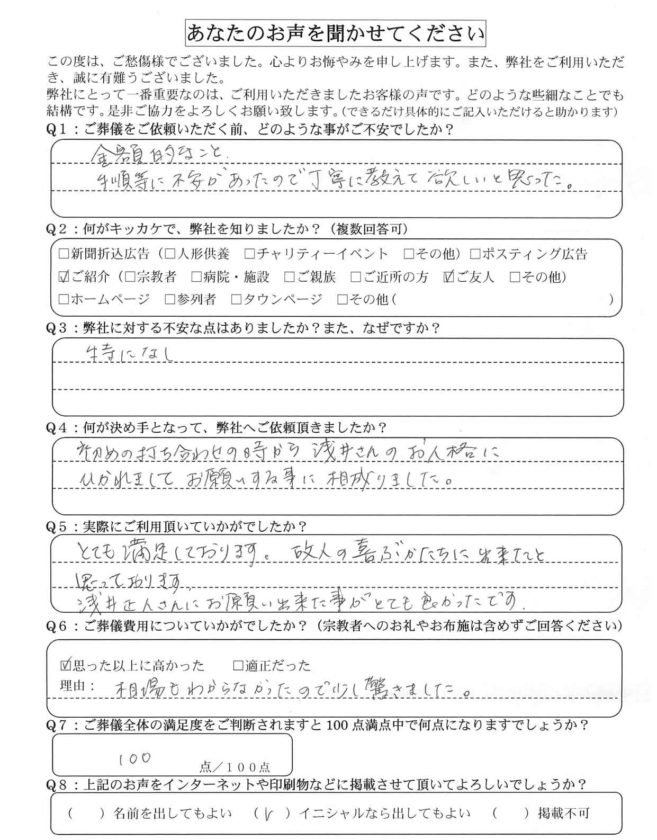 あなたのお声を聞かせてください
この度は、ご愁傷様でございました。心よりお悔やみを申し上げます。また、弊社をご利用いただ
き、誠に有難うございました。
弊社にとって一番重要なのは、ご利用いただきましたお客様の声です。どのような些細なことでも
結構です。是非ご協力をよろしくお願い致します。(できるだけ具体的にご記入いただけると助かります)
Q1：ご葬儀をご依頼いただく前、どのような事がご不安でしたか？
金額的なこと、
手順等に不安があったので丁寧に教えて欲しいと思った。
Q2：何がキッカケで、弊社を知りましたか？（複数回答可）
□新聞折込広告（□人形供養 □チャリティーイベント □その他）□ポスティング広告
☑ご紹介（□宗教者 □病院・施設 □ご親族 □ご近所の方 ☑ご友人 □その他）
□ホームページ □参列者 □タウンページ □その他（ ）
Q3：弊社に対する不安な点はありましたか？また、なぜですか？
特になし
Q4：何が決め手となって、弊社へご依頼頂きましたか？
初めの打ち合わせの時から 浅井さんの お人格に
ひかれまして お願いする事に 相成りました。
Q5：実際にご利用頂いていかがでしたか？
とても満足しております。 故人の喜ぶかたちに出来たと
思っております。
浅井正人さんにお願い出来た事がとても良かったです。
Q6：ご葬儀費用についていかがでしたか？（宗教者へのお礼やお布施は含めずご回答ください）
☑思った以上に高かった □適正だった
理由： 相場もわからなかったので少し驚きました。
Q7：ご葬儀全体の満足度をご判断されますと100点満点中で何点になりますでしょうか？
100 点／100点
Q8：上記のお声をインターネットや印刷物などに掲載させて頂いてよろしいでしょうか？
（ ）名前を出してもよい （✓）イニシャルなら出してもよい （ ）掲載不可